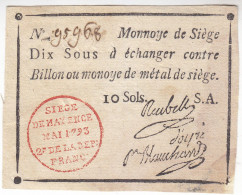 No. 95968 Monnoye de Siège
Dix Sous à échanger contre
Billon ou monoye de métal de siège.
10 Sols. S.A.
Reubell
SIEGE
DE MAYENCE
MAI 1793
2e DE LA REP.
FRANC.